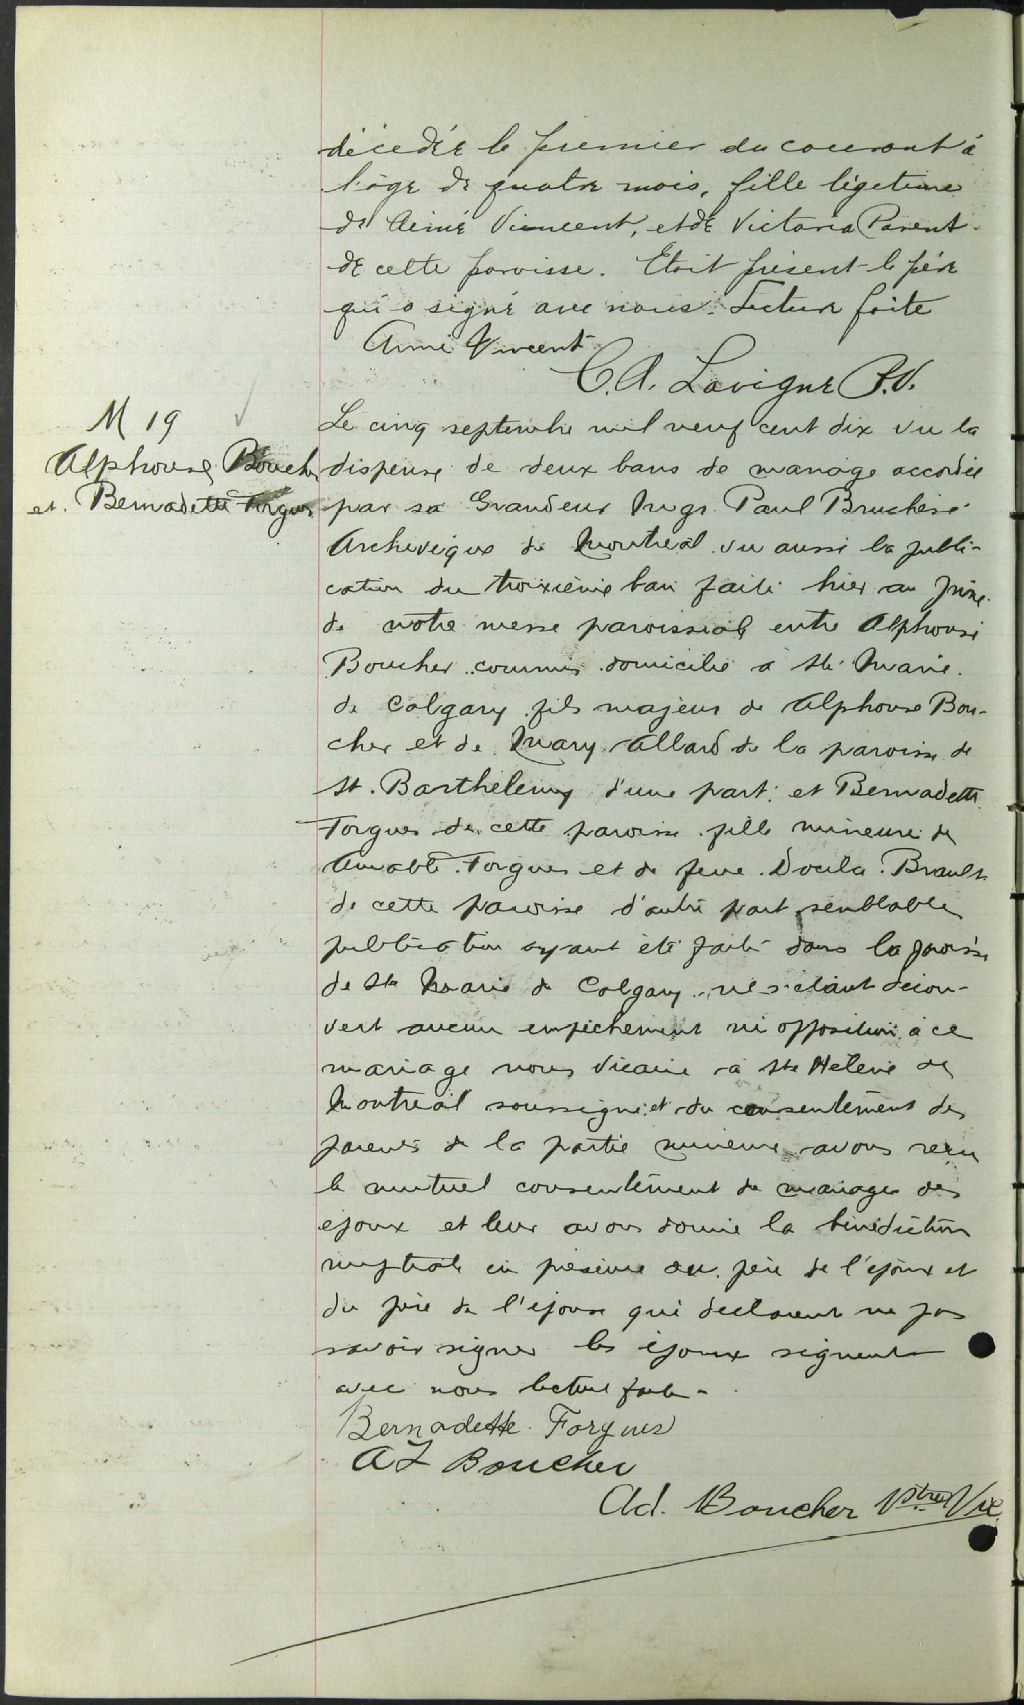 décédée le premier du courant à
l'âge de quatre mois, fille légitime
de Aimé Vincent, et de Victoria Parent
de cette paroisse. Etait présent le père
qui a signé avec nous. Lecture faite
Aimé Vincent
C. A. Lavigne P.V.
M 19
Alphonse Boucher
et Bernadette Forgues
Le cinq septembre mil neuf cent dix vu la
dispense de deux bans de mariage accordée
par sa Grandeur Mgr. Paul Bruchési
Archevêque de Montréal vu aussi la publi-
cation du troisième ban faite hier au prône
de notre messe paroissiale entre Alphonse
Boucher commis domicilié à Ste Marie
de Calgary fils majeur de Alphonse Bou-
cher et de Mary Allard de la paroisse de
St. Barthélemy d'une part; et Bernadette
Forgues de cette paroisse fille mineure de
Amable Forgues et de feue Brault
de cette paroisse d'autre part semblable
publication ayant été faite dans la paroisse
de Ste Marie de Calgary, ne s'étant décou-
vert aucun empêchement ni opposition à ce
mariage nous Vicaire à Ste Hélène de
Montréal soussigné et du consentement des
parents de la partie mineure avons reçu
le mutuel consentement de mariage des
époux et leur avons donné la bénédiction
nuptiale en présence du père de l'époux et
du père de l'épouse qui déclarent ne pas
savoir signer les époux signent
avec nous lecture faite -
Bernadette Forgues
AL Boucher
Ad. Boucher Ptre Vic.